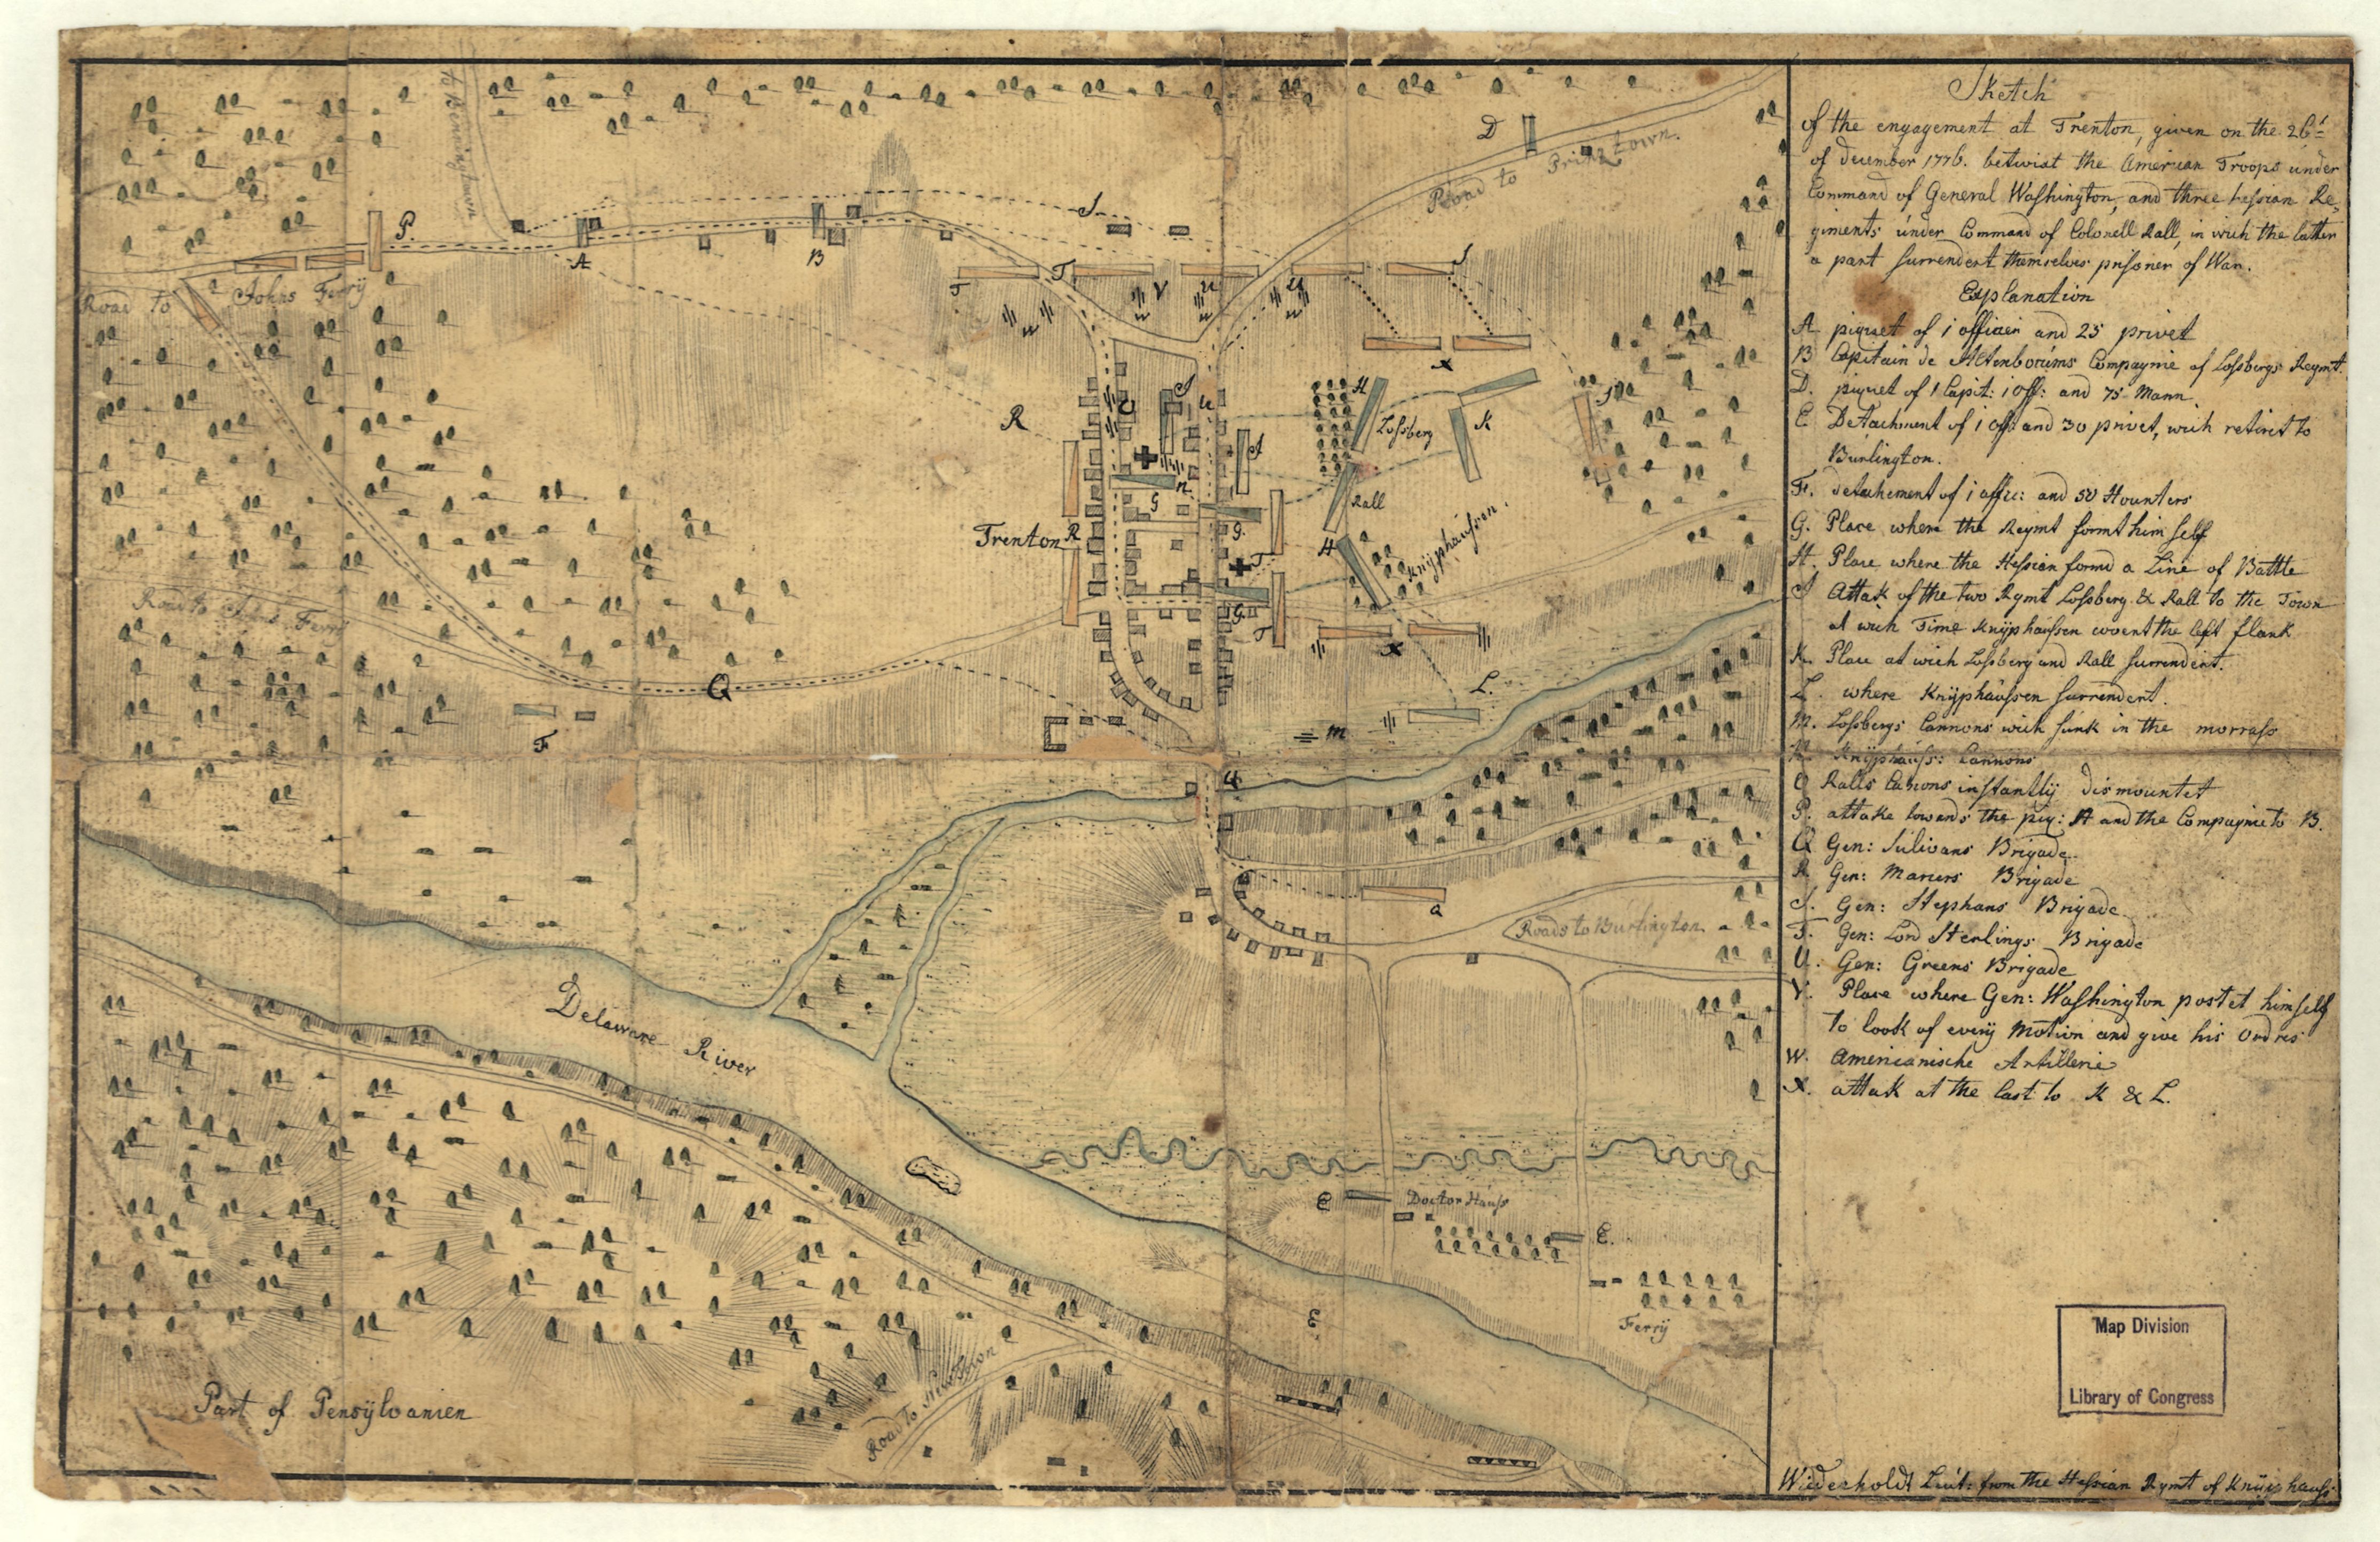 Sketch
of the engagement at Trenton, given on the 26t
of december 1776. betwixt the American Troops under
Command of General Washington, and three hessian Re,
giments under Command of Colonell Rall, in wich the latter
a part surrendert themselves prisoner of War.
Explanation
A. piquet of 1 officier and 25 privet
B Capitain de Altenboums Compaynie of Lossbergs Regmt.
D. piquet of 1 Capit: 1 Off: and 75 Mann.
E Detachment of 1 Off: and 30 privet, wich retiret to
Burlington.
F. detachement of 1 offic: and 50 Hounters
G. Place where the Regmt formt him self
H. Place where the Hessian formd a Line of Battle
J Attak of the two Rgmt Lossberg & Rall to the Town
at wich Time Knÿphaussen covert the left flank
K. Place at wich Lossberg and Rall surrendert.
L. where Knÿphaussen surrendert.
M. Lossbergs Cannons wich sunk in the morrass
N Knÿphauss: Cannons
O Ralls Canons instantlÿ dismountet
P. attake towards the piq: A and the Compaynie to B.
Q Gen: Sulivans Brigade.
R Gen: Marcers Brigade
S. Gen: Stephans Brigade
T. Gen: Lord Sterlings Brigade
U. Gen: Greens Brigade
V. Place where Gen: Washington postet himself
to look of everÿ Motion and give his Ordres
W. Americanische Artillerie
X. attak at the last to K & L.
Map Division
Library of Congress
Wiederholdt Lieut: from the Hessian Rgmt of Knÿphauss:
to Penningtown
D
Road to Prinztown.
P.
A
B
S
Road to Johns Ferrÿ
T
T
V
U
U
S
X
R
O
J
U
J
H
Lossberg
K
S
n
G
g.
Rall
Trenton
R
H
Knÿphaussen.
T
G
T
X
Road to Johns Ferrÿ
Q
L.
F
m
Q
Q
Roads to Burlington
Delaware River
E
Doctor Hauss
E.
E
Ferrÿ
Part of Pensÿlvanien
Road to NewTown